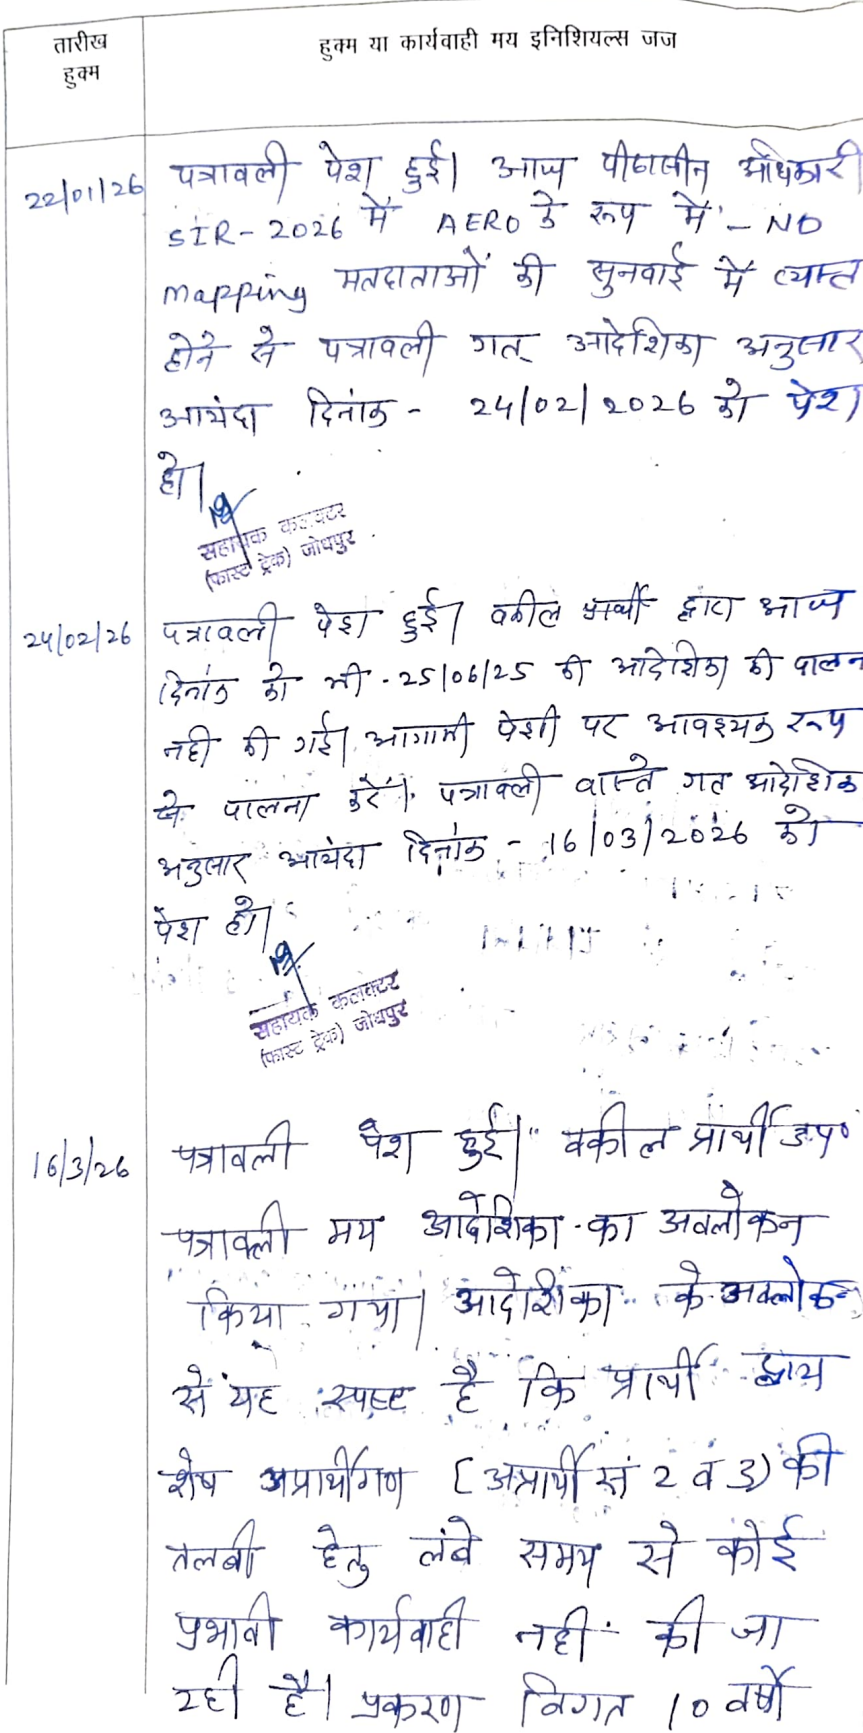 तारीख
हुक्म
हुक्म या कार्यवाही मय इनिशियल्स जज
22/01/26
पत्रावली पेश हुई। आज पीठासीन अधिकारी
SIR-2026 में AERO के रूप में - NO
mapping मतदाताओं की सुनवाई में व्यस्त
होने से पत्रावली गत् आदेशिका अनुसार
आयंदा दिनांक - 24/02/2026 को पेश
हो।
सहायक कलक्टर
(फास्ट ट्रेक) जोधपुर
24/02/26
पत्रावली पेश हुई। वकील प्रार्थी द्वारा आज
दिनांक को भी 25/06/25 की आदेशिका की पालन
नही की गई। आगामी पेशी पर आवश्यक रूप
से पालना करें। पत्रावली वास्ते गत आदेशिक
अनुसार आयंदा दिनांक - 16/03/2026 को
पेश हो।
सहायक कलक्टर
(फास्ट ट्रेक) जोधपुर
16/3/26
पत्रावली पेश हुई। वकील प्रार्थी उप०
पत्रावली मय आदेशिका का अवलोकन
किया गया। आदेशिका के अवलोकन
से यह स्पष्ट है कि प्रार्थी द्वारा
शेष अप्रार्थीगण (अप्रार्थी सं 2 व 3) की
तलबी हेतु लंबे समय से कोई
प्रभावी कार्यवाही नहीं की जा
रही है। प्रकरण विगत 10 वर्षों